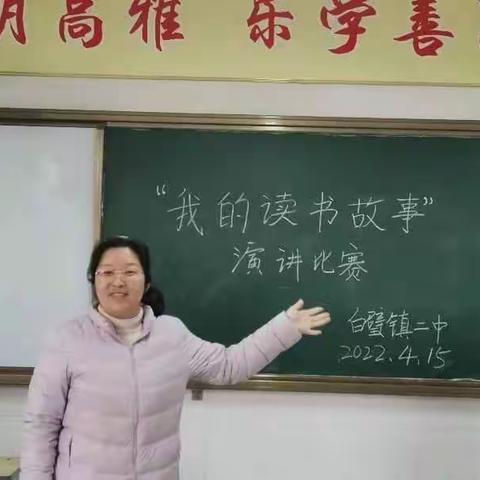 明高雅 乐学善
“我的读书故事”
演讲比赛
白璧镇二中
2022.4.15